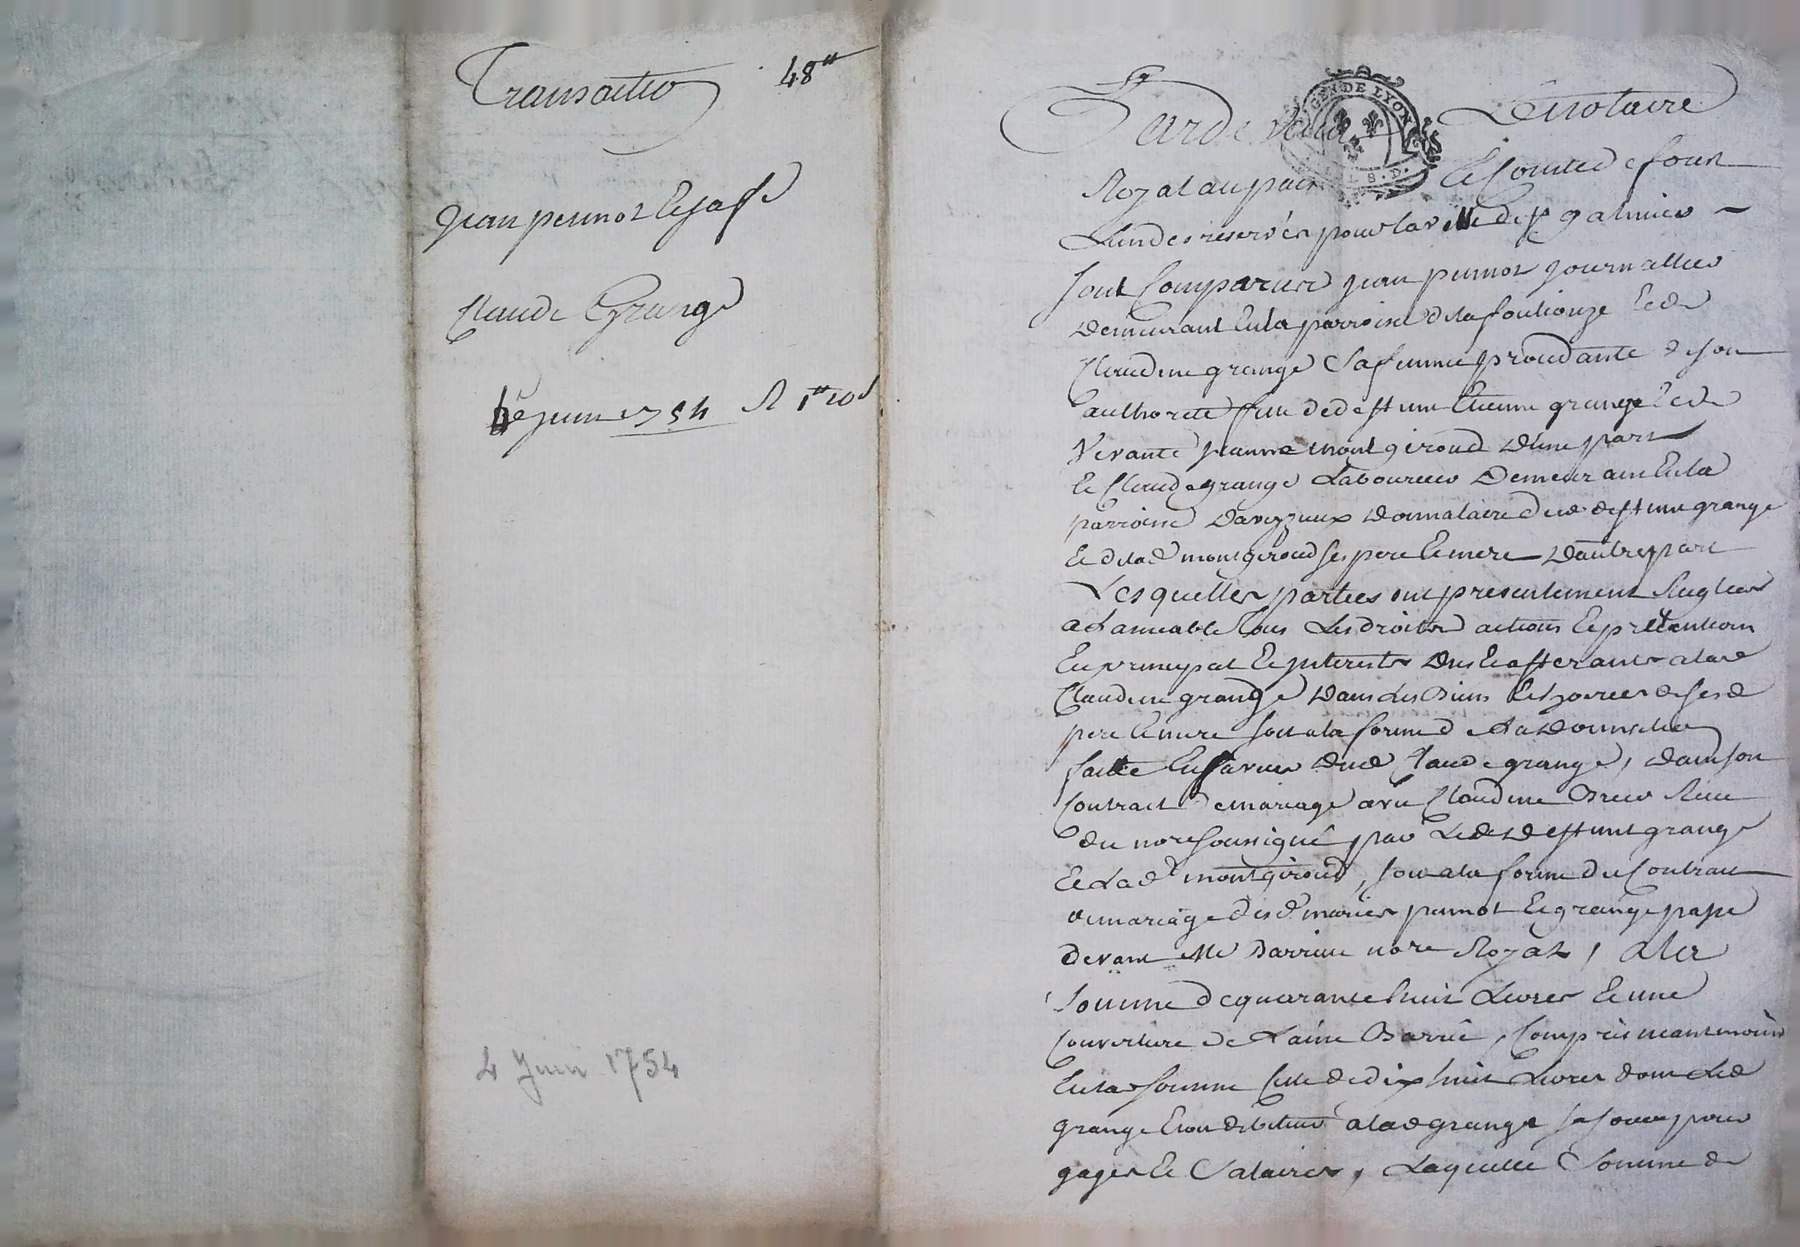 Transactio 48#
jean perinot Et sa fe
Claude Grange
4e juin 1754 R 1# 10s
4 Juin 1754
GEN DE LYON
Pardevant Le notaire
Royal au païs Et Comté de forest
Lundes reservés pour la ville de st galmier
sont Comparus jean perinot journallier
demeurant En la parroisse de la fouliouze Et de
Claudine grange sa femme procedante de son
authorité fille de deffunt Etienne grange Et de
vivante jeanne montgiroud d'une part
Et Claude grange Laboureur Demeurant En la
parroisse daveyzieux donnataire dud deffunt grange
Et de lad montgiroud ses pere Et mere d'autre part
Lesquelles parties ont presentement Regléer
a L'amiable tous Les droits actions Et prétentions
En principal Et interests dus Et afferants a lad
Claudine grange dans Les Biens Et hoiries de sesd
pere Et mere soit a la forme de La donnation
faitte En faveur dud Claude grange, dans son
Contract de mariage avec Claudine Receu
du nore soussigné par Ledt deffunt grange
Et Lad montgiroud, soit a la forme du Contract
de mariage desd mariés perinot Et grange passé
devant Me nore Royal, a la
somme de quarante huit Livres Et une
Couverture de Laine Barrée, Compris neantmoins
En la somme Celle de dix huit Livres dont Led
grange Etoit debiteur a lad grange sa soeur pour
gages Et Salaires, Laquelle somme de